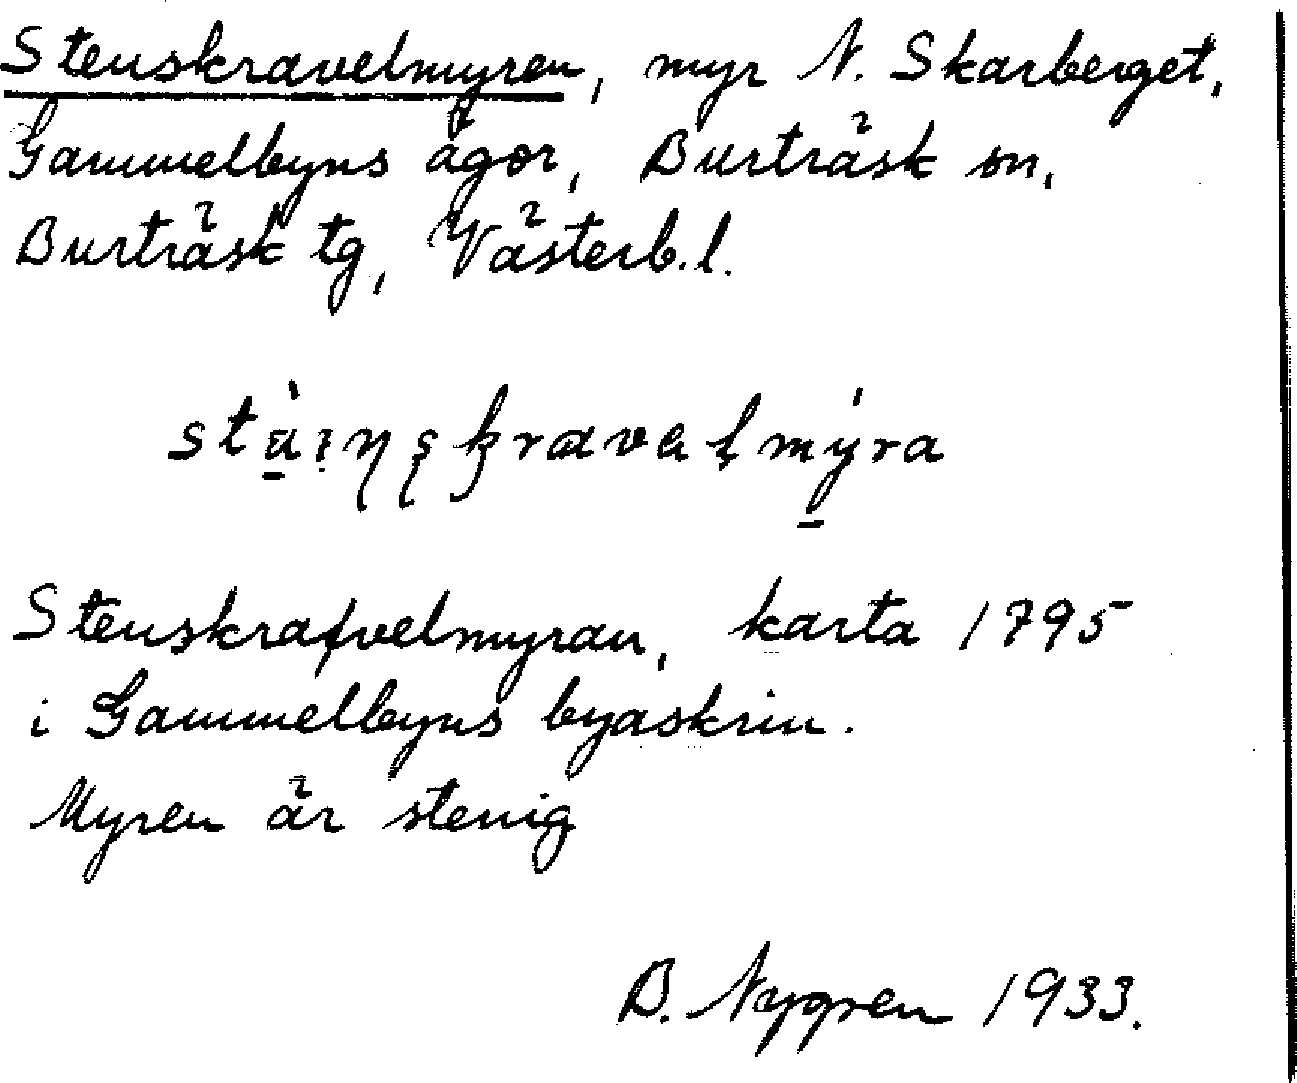 Stenskravelmyren, myr N. Skarberget,
Gammelbyns ägor, Burträsk sn,
Burträsk tg, Västerb. l.
Stenskrafvelmyran, karta 1795
i Gammelbyns byaskrin.
Myren är stenig
B. Nygren 1933.